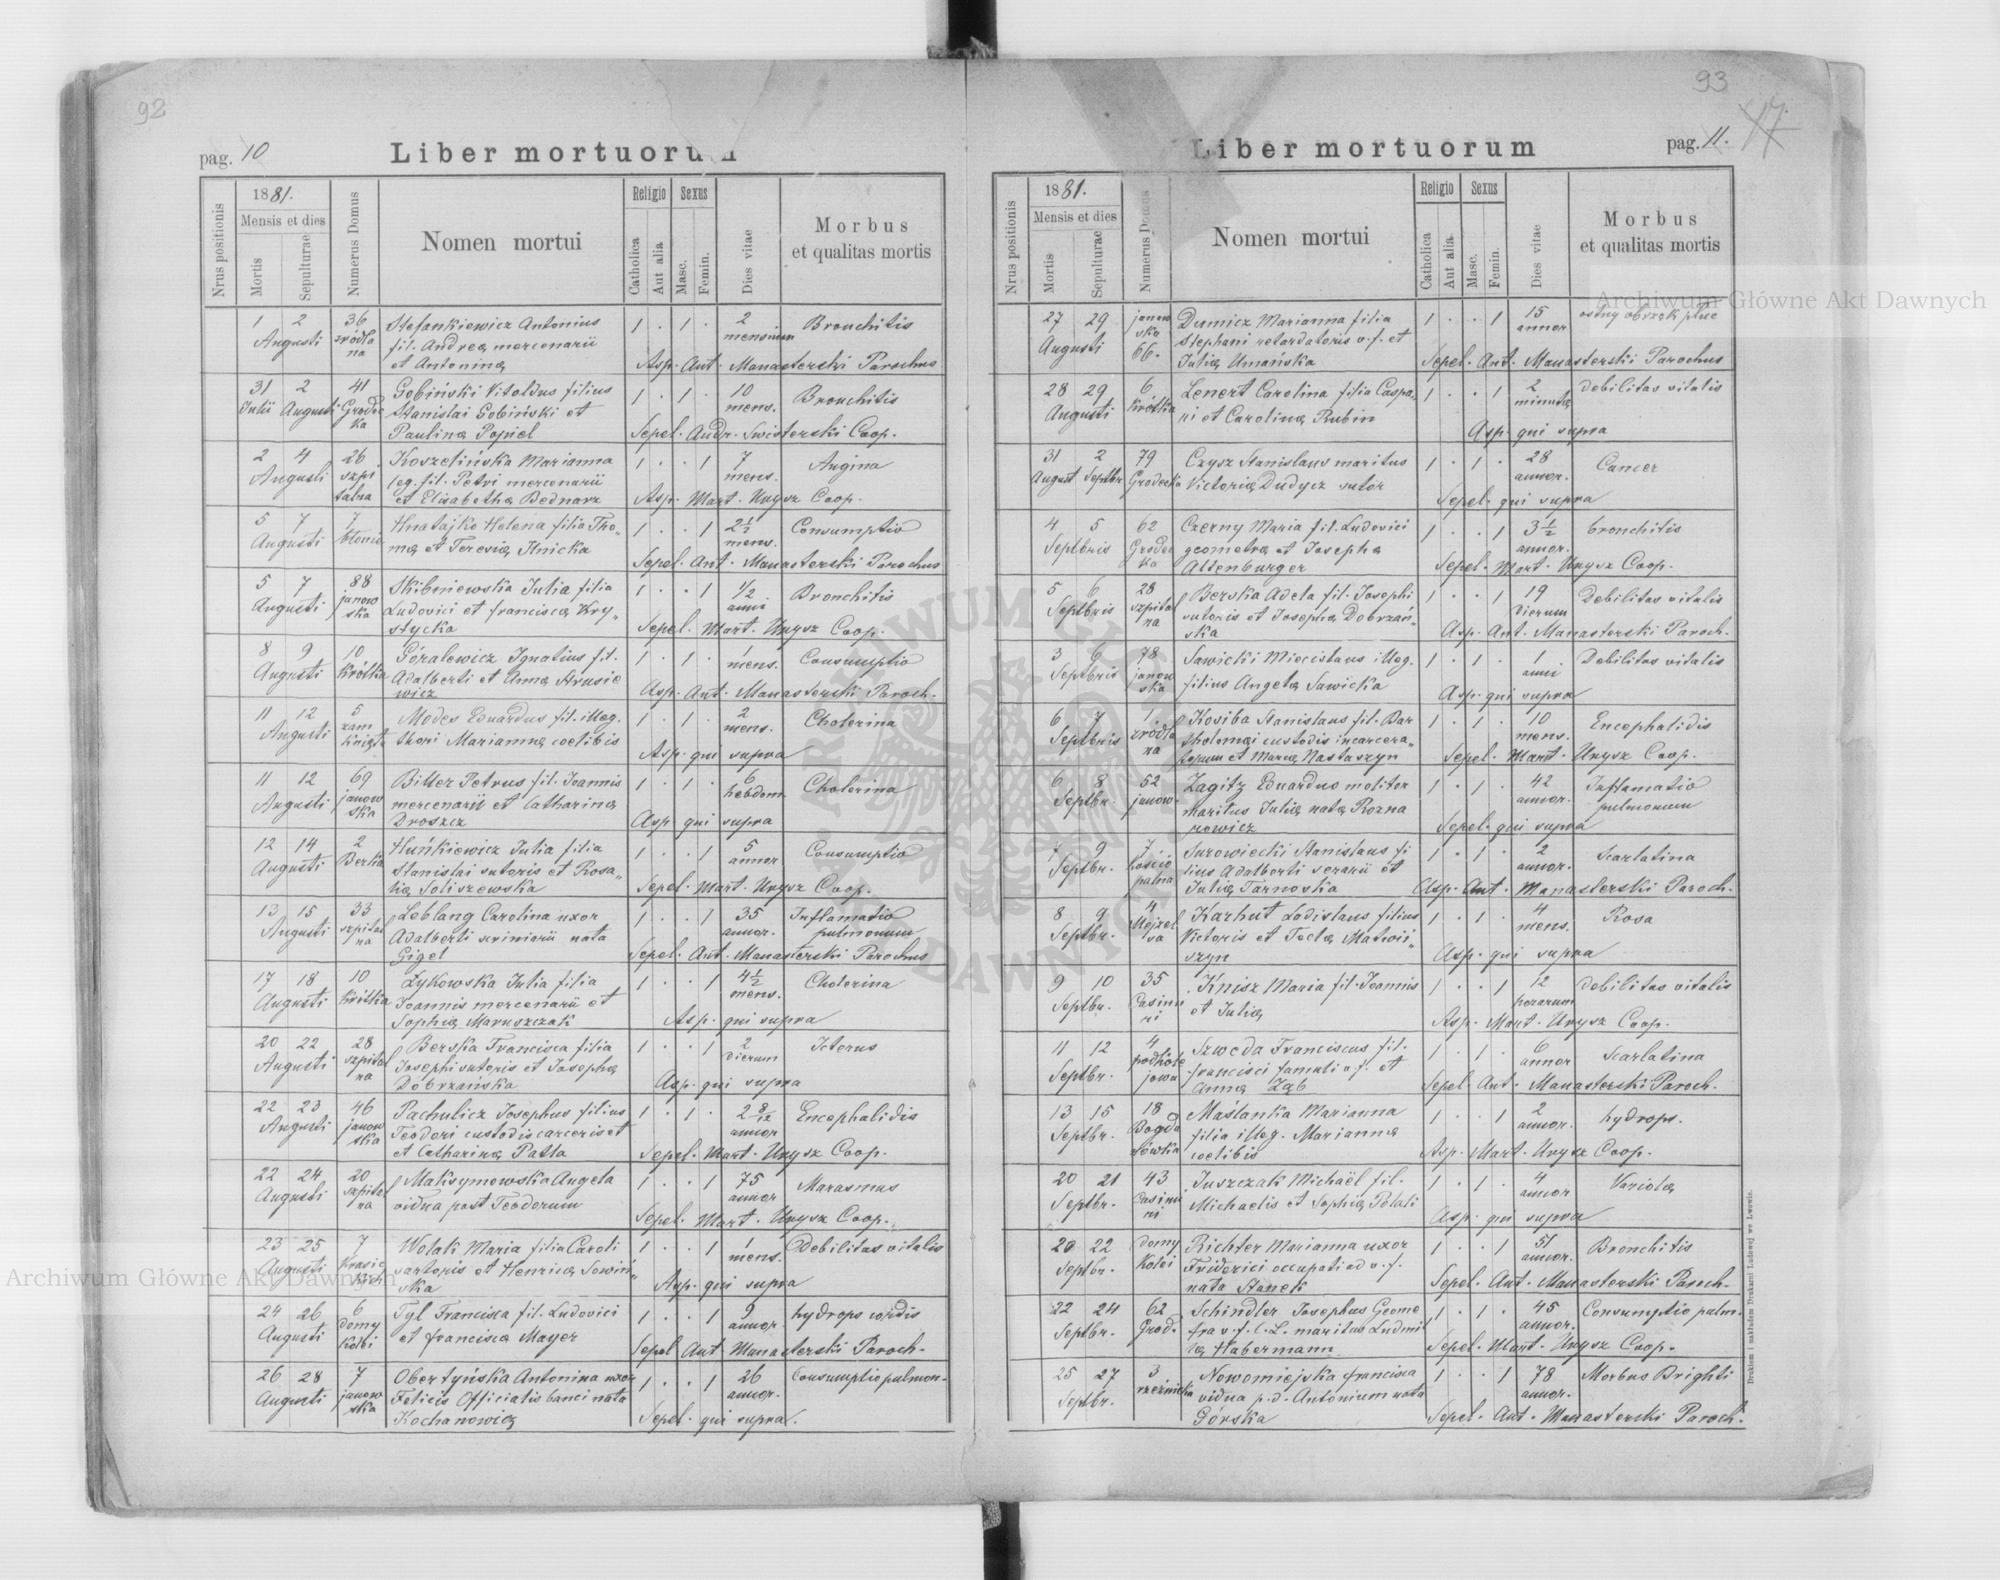 92
pag. 10
Liber mortuorum
Nrus positionis
1881.
Mensis et dies
Mortis
Sepulturae
Numerus Domus
Nomen mortui
Religio
Catholica
Aut alia
Sexus
Masc.
Femin.
Dies vitae
Morbus
et qualitas mortis
1 2 36 Stefankiewicz Antonius 1 . 1 . 2 Bronchitis
Augusti źródla fil. Andreæ mercenarii mensium
na et Antoninæ Asp. Ant. Manasterski Parochus
31 2 41 Gobiński Vitoldus filius 1 . 1 . 10 Bronchitis
Julii Augusti Grodec Stanislai Gobiński et mens.
ka Paulinæ Popiel Sepel. Andr. Swisterski Coop.
2 4 26 Koszelińska Marianna 1 . . 1 7 Angina
Augusti szpi leg. fil. Petri mercenarii mens.
talna et Elisabethæ Bednarz Asp. Mart. Unysz Coop.
5 7 7 Hnatajko Helena filia Tho- 1 . . 1 2½ Consumptio
Augusti błonie mæ et Teresiæ Ilnicka mens.
Sepel. Ant. Manasterski Parochus
5 7 88 Skibniewska Julia filia 1 . . 1 ½ Bronchitis
Augusti janow Ludovici et franciscæ Kry- anni
ska stycka Sepel. Mart. Unysz Coop.
8 9 10 Góralewicz Ignatius fil. 1 . 1 . 1 Consumptio
Augusti Krótka Adalberti et Annæ Hrusie mens.
wicz Asp. Ant. Manasterski Paroch.
11 12 5 Modes Eduardus fil. illeg. 1 . 1 . 2 Cholerina
Augusti zam thori Mariannæ coelibis mens.
knięta Asp. qui supra
11 12 69 Bitter Petrus fil. Joannis 1 . 1 . 6 Cholerina
Augusti janow mercenarii et Catharinæ hebdom.
ska Droszcz Asp. qui supra
12 14 2 Huńkiewicz Julia filia 1 . . 1 5 Consumptio
Augusti Berka Stanislai sutoris et Rosa- annor.
liæ Soliszewska Sepel. Mart. Unysz Coop.
13 15 33 Leblang Carolina uxor 1 . . 1 35 Inflamatio
Augusti szpital Adalberti scriniarii nata annor. pulmonum
na Gigel Sepel. Ant. Manasterski Parochus
17 18 10 Łykowska Julia filia 1 . . 1 4½ Cholerina
Augusti Krótka Joannis mercenarii et mens.
Sophiæ Maruszczak Asp. qui supra
20 22 28 Berska Francisca filia 1 . . 1 2 Icterus
Augusti szpital Josephi sutoris et Josephæ dierum
na Dobrzańska Asp. qui supra
22 23 46 Pachulicz Josephus filius 1 . 1 . 2 8/12 Encephalidis
Augusti janow Teodori custodis carceris et annor
ska et Catharinæ Patła Sepel. Mart. Unysz Coop.
22 24 20 Maksymowska Angela 1 . . 1 75 Marasmus
Augusti szpital vidua post Teodorum annor
na Sepel. Mart. Unysz Coop.
23 25 7 Wolak Maria filia Caroli 1 . . 1 1 Debilitas vitalis
Augusti sartoris et Henricæ Sowiń- mens.
ska Asp. qui supra
24 26 6 Tyl Francisca fil. Ludovici 1 . . 1 9 hydrops cordis
Augusti domy et franciscæ Mayer annor.
Kolei Sepel Ant. Manasterski Paroch.
26 28 7 Obertyńska Antonina uxor 1 . . 1 26 Consumptio pulmon.
Augusti janow Felicis Officialis banci nata annor.
ska Kochanowicz Sepel. qui supra.
93
17
Liber mortuorum
pag. 11.
Nrus positionis
1881.
Mensis et dies
Mortis
Sepulturae
Numerus Domus
Nomen mortui
Religio
Catholica
Aut alia
Sexus
Masc.
Femin.
Dies vitae
Morbus
et qualitas mortis
27 29 janow Dumicz Marianna filia 1 . . 1 15 ostry obrzęk płuc
Augusti ska Stephani retardatoris v. f. et annor
66. Juliæ Umańska Sepel. Ant. Manasterski Parochus
28 29 6 Lenert Carolina filia Caspa- 1 . . 1 2 debilitas vitalis
Augusti Krótka ri et Carolinæ Rubin minutæ
Asp. qui supra
31 2 79 Czysz Stanislaus maritus 1 . 1 . 28 Cancer
August Septbr. Grodecka Victoriæ Dudycz sutor annor.
Sepel. qui supra
4 5 62 Czerny Maria fil. Ludovici 1 . . 1 3½ bronchitis
Septbris Grodec geometræ et Josephæ annor.
ka Altenburger Sepel. Mart. Unysz Coop.
5 6 28 Berska Adela fil. Josephi 1 . . 1 19 Debilitas vitalis
Septbris szpital sutoris et Josephæ Dobrzań- dierum
na ska Asp. Ant. Manasterski Paroch.
3 6 78 Sawicki Miecislaus illeg. 1 . 1 . 1 Debilitas vitalis
Septbris janow filius Angelæ Sawicka anni
ska Asp. qui supra
6 7 1 Kosiba Stanislaus fil. Bar 1 . 1 . 10 Encephalidis
Septbris źródla tholomæi custodis incarcera- mens.
na torum et Mariæ Nastaszyn Sepel. Mart. Unysz Coop.
6 8 52 Zagitz Eduardus molitor 1 . 1 . 42 Inflamatio
Septbr. janow maritus Juliæ natæ Rozna annor. pulmonum
rowicz Sepel. qui supra
7 9 7 Surowiecki Stanislaus fi 1 . 1 . 2 Scarlatina
Septbr. lius Adalberti serarii et annor.
Juliæ Tarnovska Asp. Ant. Manasterski Paroch.
8 9 4 Karhut Ladislaus filius 1 . 1 . 4 Rosa
Septbr. Mejzel Victoris et Teclæ Matwii- mens.
sa szyn Asp. qui supra
9 10 35 Knisz Maria fil. Joannis 1 . . 1 12 debilitas vitalis
Septbr. Casimi et Juliæ horarum
ri Asp. Mart. Unysz Coop.
11 12 4 Szweda Franciscus fil. 1 . 1 . 6 Scarlatina
Septbr. francisci famuli v. f. et annor
Annæ Ząb Sepel Ant. Manasterski Paroch.
13 15 18 Maślanka Marianna 1 . . 1 2 hydrops.
Septbr. Bogda filia illeg. Mariannæ annor.
nówka coelibis Asp. Mart. Unysz Coop.
20 21 43 Juszczak Michaël fil. 1 . 1 . 4 Variolæ
Septbr. Casimi Michaelis et Sophiæ Polali annor
ri Asp. qui supra
20 22 domy Richter Marianna uxor 1 . . 1 51 Bronchitis
Septbr. Kolei Friderici occupati ad v. f. annor.
nata Stanek Sepel. Ant. Manasterski Paroch.
22 24 62 Schindler Josephus Geome 1 . 1 . 45 Consumptio pulm.
Septbr. Grod. tra v. f. C. L. maritus Ludmi annor.
læ Habermann Sepel. Mart. Unysz Coop.
25 27 3 Nowomiejska francisca 1 . . 1 78 Morbus Brighti
Septbr. rzeźnicka vidua p. d. Antonium nata annor.
Górska Sepel. Ant. Manasterski Paroch.
Drukiem i nakładem Drukarni Ludowej we Lwowie.
Archiwum Główne Akt Dawnych
Archiwum Główne Akt Dawnych
ARCHIWUM GŁÓWNE AKT DAWNYCH